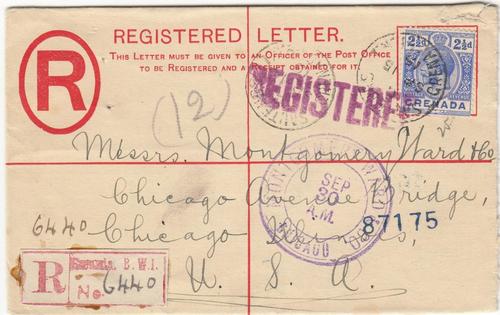 REGISTERED LETTER.
THIS LETTER MUST BE GIVEN TO AN OFFICER OF THE POST OFFICE
TO BE REGISTERED AND A RECEIPT OBTAINED FOR IT.
R
2½d 2½d
GRENADA
REGISTERED
(12)
Messrs. Montgomery Ward & Co
Chicago Avenue Bridge,
6440 Chicago Illinois,
U. S. A.
SEP
30
A.M.
CHICAGO
87175
R
Grenada, B.W.I.
No. 6440